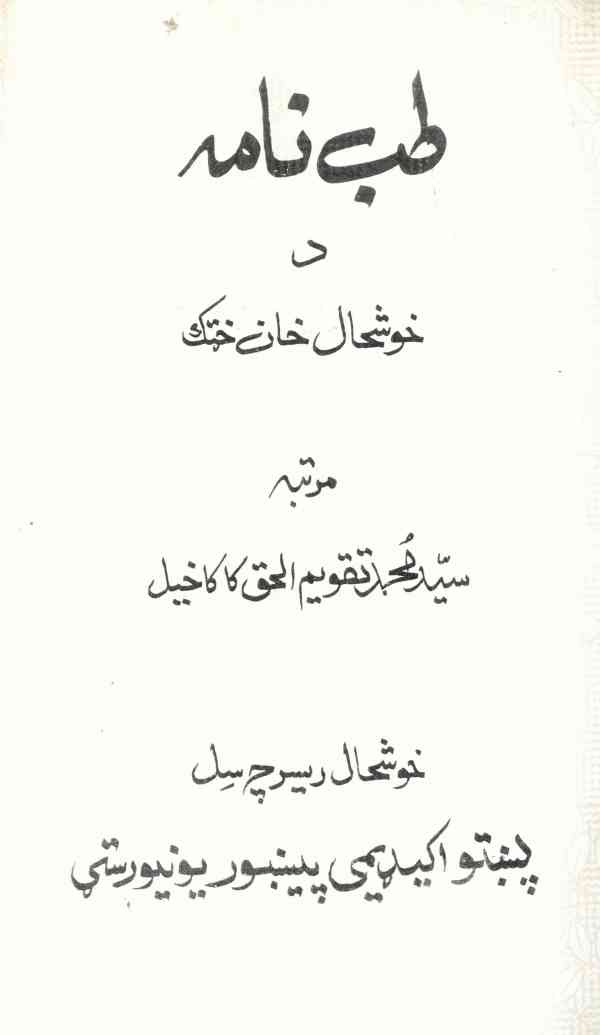 طب نامه
د
خوشحال خان خټک
مرتبه
سیّد مُحمد تقویم الحق کاکاخیل
خوشحال ریسرچ سِل
پښتو اکیډیمی پیښور یونیورسټي